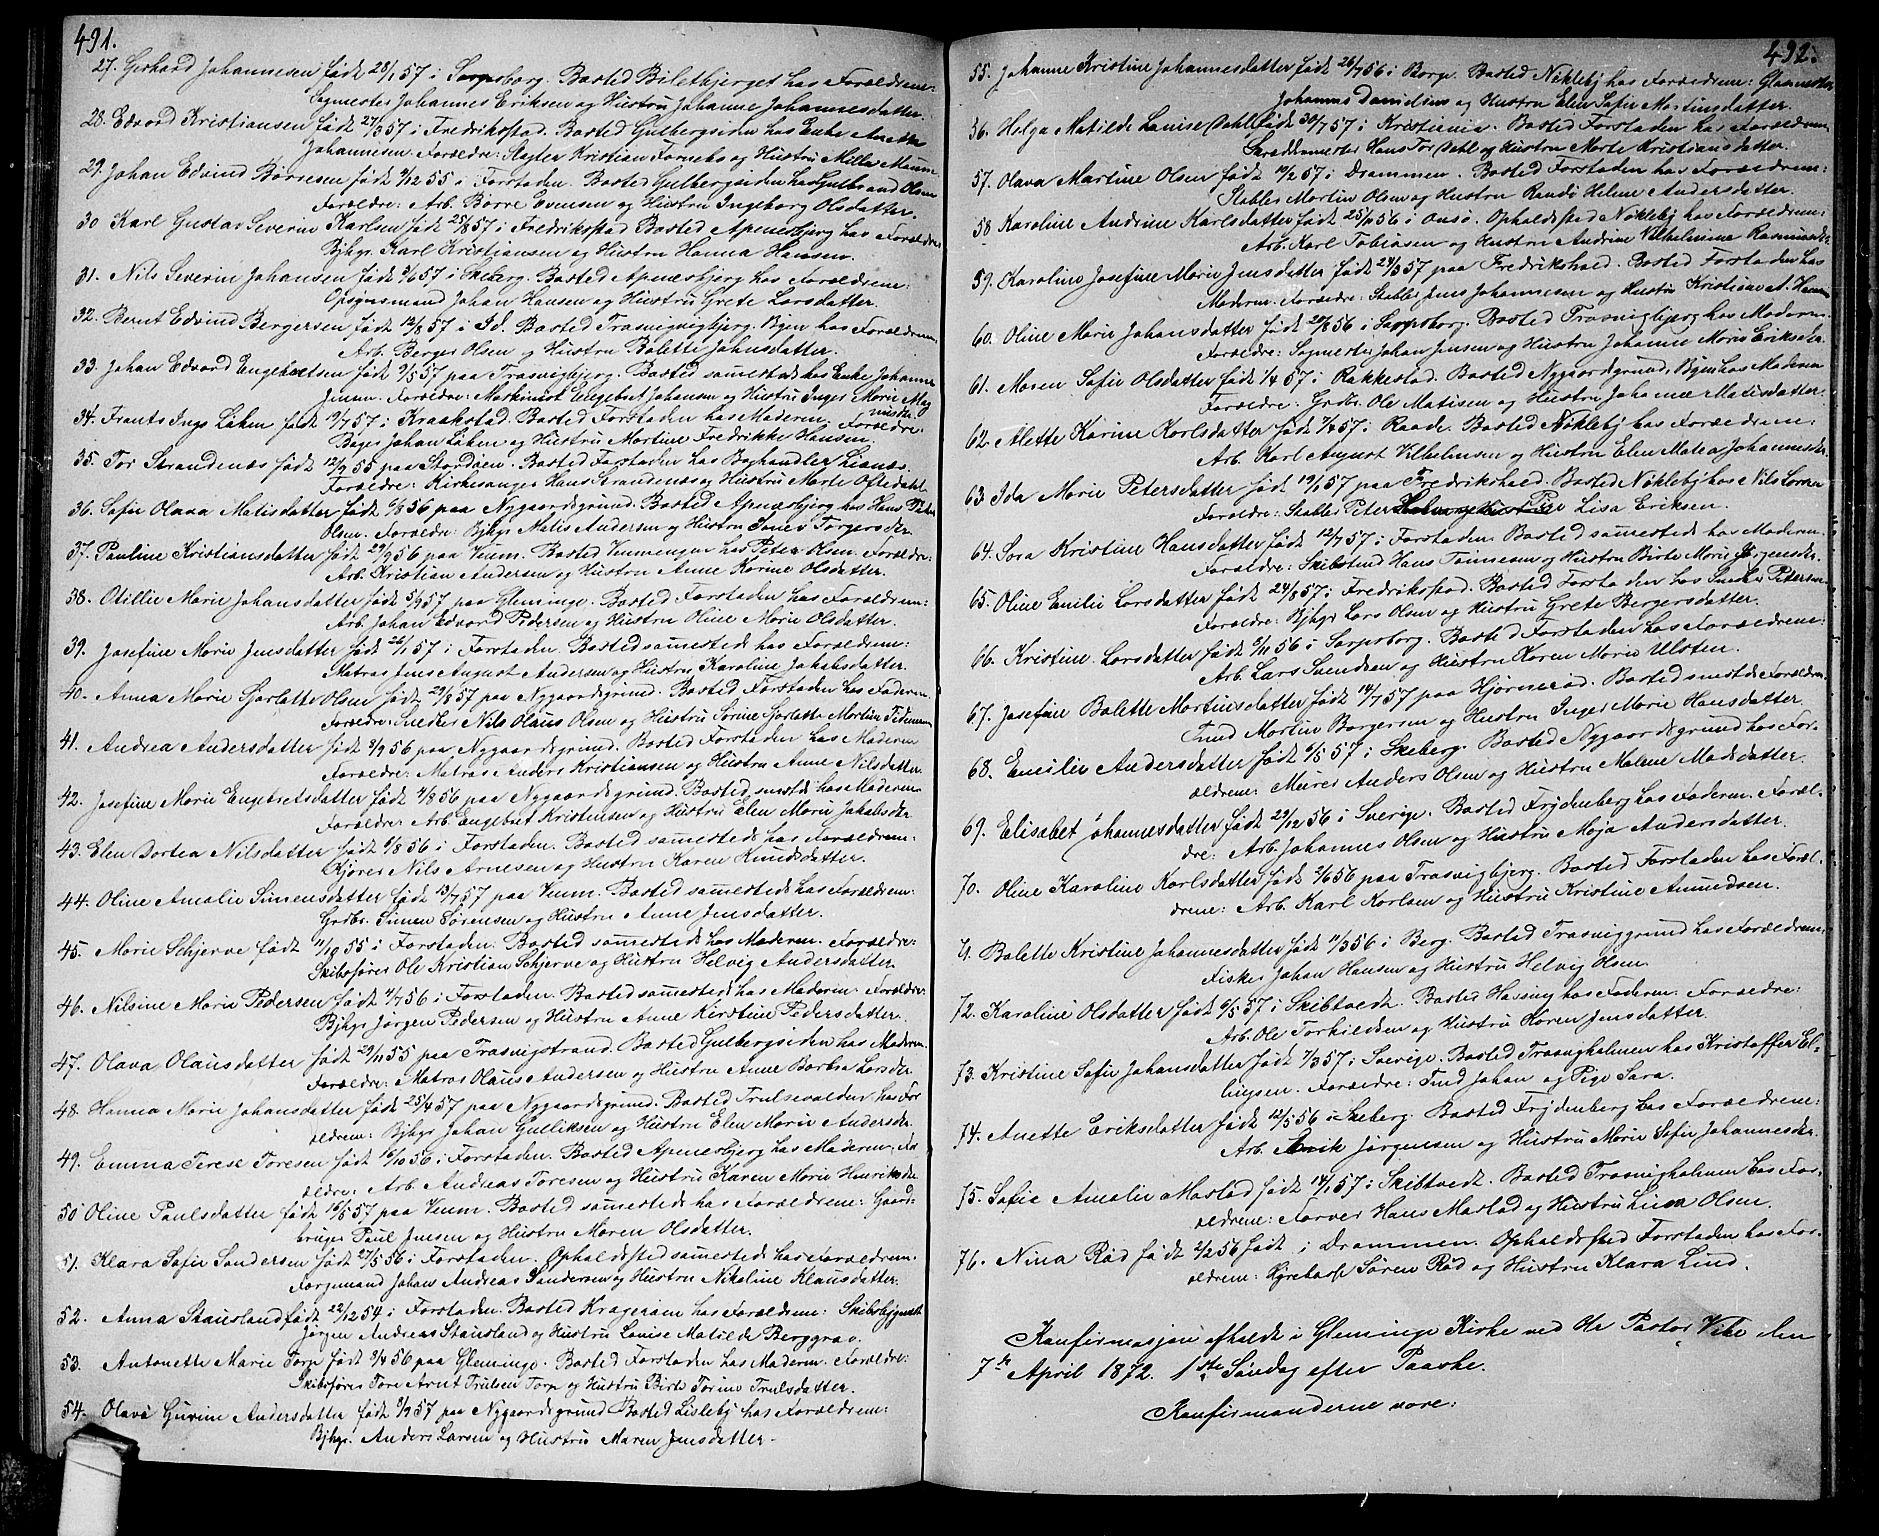 491.
27. Gerhard Johannesen født 28/1 57 i Sarpsborg. Bosted Biletbjerget hos Forældrene:
Sagmester Johannes Eriksen og Hustru Johanne Johannesdatter.
28. Edvard Kristiansen født 27/3 57 i Fredrikstad. Bosted Gulbergsiden hos Enke Anette
Johannesen. Forældre: Slagter Kristian Fornebo og Hustru Milla
29. Johan Edvind Børresen født 9/12 55 i Forstaden. Bosted Gulbergsiden hos Gulbrand Olsen
Forældre: Arb. Børre Evensen og Hustru Ingeborg Olsdatter.
30 Karl Gustav Severin Karlsen født 25/8 57 i Fredrikstad Bosted Apenesbjerg hos Forældrene
Bjhgr. Karl Kristiansen og Hustru Hanna Hansen.
31. Nils Severin Johansen født 9/6 57 i Skeberg. Bosted Apenesbjerg hos Forældrene:
Opsynsmand Johan Hansen og Hustru Grete Larsdatter.
32. Bernt Edvind Bergersen født 12/8 57 i Id. Bosted Trasvigbjerg. Byen hos Forældrene,
Arb. Berger Olsen og Hustru Bolette Johnsdatter.
33. Johan Edvard Engebretsen født 9/5 57 paa Trasvigbjerg. Bosted samestede hos Enke Johanne
Jensen. Forældre: Maskinist Engebret Johansen og Hustru Inger Marie Mag
nusdtr.
34. Frants Inge Liken født 19/7 57 i Kraakstad. Bosted Forstaden hos Moderen. Forældre:
Bager Johan Liken og Hustru Martine Fredrikke Hansen.
35. Tor Strandenæs født 12/9 55 paa Stordøen. Bosted Forstaden hos Boghandler Lianæs.
Forældre: Kirkesanger Hans Strandenæs og Hustru Marte Oftedahl.
36. Sofie Olava Matisdatter født 6/8 56 paa Nygaardsgrund. Bosted Apenesbjerg hos Hans Peter
Olsen. Forældre: Bjhgr Matis Andersen og Hustru Inger Torgersdtr.
37. Pauline Kristiansdatter født 29/9 56 paa Veum. Bosted Veumengen hos Peter Olsen. Forældre:
Arb. Kristian Andersen og Hustru Anne Karine Olsdatter.
38. Otillie Marie Johansdatter født 5/9 57 paa Glemminge. Bosted Forstaden hos Forældrene:
Arb. Johan Edvard Pedersen og Hustru Oline Marie Olsdatter.
39. Josefine Marie Jensdatter født 26/1 57 i Forstaden. Bosted samestede hos Forældrene:
Matros Jens August Andersen og Hustru Karoline Jakobsdatter.
40. Anna Marie Sjarlotte Olsen født 29/8 57 paa Nygaardsgrund. Bosted Forstaden hos Faderen.
Forældre: Snedker Nils Olaus Olsen og Hustru Sørine Sjarlotte Martine Pedersen
41. Andrea Andersdatter født 9/9 56 paa Nygaardsgrund. Bosted Forstaden hos Moderen
Forældre: Matros Anders Kristiansen og Hustru Anne Nilsdatter.
42. Josefine Marie Engebretsdatter født 4/8 56 paa Nygaardsgrund. Bosted smstds hos Moderen
Forældre Arb. Engebret Kristensen og Hustru Elen Marie Jakobsdtr
43. Elen Dortea Nilsdatter født 9/8 56 i Forstaden. Bosted samestede hos Forældrene:
Kjører Nils Arnesen og Hustru Karen Knudsdatter.
44. Oline Amalie Simensdatter født 13/7 57 paa Veum. Bosted samestede hos Forældrene:
Gadbr. Simen Sørensen og Hustru Anne Jensdatter.
45. Marie Schjerve født 11/10 55 i Forstaden. Bosted samestede hos Moderen. Forældre:
Skibsfører Ole Kristian Schjerve og Hustru Helvig Andersdatter.
46. Nilsine Marie Pedersen født 4/7 56 i Forstaden. Bosted samestede hos Moderen. Forældre:
Bjhgr Jørgen Pedersen og Hustru Anne Kirstine Pedersdatter.
47. Olava Olausdatter født 29/11 55 paa Trasvigstrand. Bosted Gulbergsiden hos Moderen.
Forældre: Matros Olaus Andersen og Hustru Anne Barbra Larsdtr
48. Hanna Marie Johansdatter født 25/4 57 paa Nygaardsgrund. Bosted Trulsevolden hos For
ældrene: Bjhgr Johan Gulliksen og Hustru Elen Marie Andersdtr.
49. Emma Terese Toresen født 16/10 56 i Forstaden. Bosted Apenesbjerg hos Moderen. Fo
ældre: Arb. Andreas Toresen og Hustru Karen Marie Henriksdtr
50 Oline Paulsdatter født 10/5 57 paa Veum. Bosted samestede hos Forældrene: Gaard-
bruger Paul Jensen og Hustru Maren Olsdatter.
51. Klara Sofie Sandersen født 27/5 56 i Forstaden. Opholdssted samestede hos Forældrene.
Færgemand Johan Andreas Sandersen og Hustru Nikoline Klausdatter.
52. Anna Stausland født 22/12 54 i Forstaden. Bosted Kragerøen hos Forældrene: Skibsbygmester
Jørgen Andreas Stausland og Hustru Louise Matilde Berggrav.
53. Antonette Marie Torp født 9/4 56 paa Glemminge. Bosted Forstaden hos Moderen. Forældre:
Skibsfører Tore Arnt Trulsen Torp og Hustru Birte Torine Trulsdatter.
54. Olava Gurine Andersdatter født 9/9 57 paa Nygaardsgrund Bosted Lisleby hos Forældrene:
Bjhgr. Anders Larsen og Hustru Maren Jensdatter.
492.
55. Johanne Kristine Johannesdatter født 26/7 56 i Borge. Bosted Nøkleby hos Forældrene:
Johannes Danielsen og Hustru Elen Sofie Martinsdatter.
56. Helga Matilde Louise Dahl født 30/7 57 i Kristiania. Bosted Forstaden hos Forældrene,
Skræddermester Hans Tor Dahl og Hustru Marte Kristiansdatter.
57. Olava Martine Olsen født 10/2 57 i Drammen. Bosted Forstaden hos Forældrene:
Stabler Martin Olsen og Hustru Randi Helene Andersdatter.
58 Karoline Andrine Karlsdatter født 25/10 56 i Onsø. Opholdssted Nøkleby hos Forældrene:
Arb. Karl Tobiasen og Hustru Andrine Vilhelmine Rasmusdtr.
59. Karoline Josefine Marie Jensdatter født 24/3 57 paa Fredrikshald. Bosted Forstaden hos
Moderen. Forældre: Stabler Jens Johannesen og Hustru Kristiane A. Hansen
60. Oline Marie Johansdatter født 20/8 56 i Sarpsborg. Bosted Trasvigbjerg hos Moderen.
Forældre: Sagmester Johan Jensen og Hustru Johanne Marie Eriksdtr.
61. Maren Sofie Olsdatter født 1/4 57 i Rakkestad. Bosted Nygaardsgrund, Byen hos Moderen
Forældre: Grdbr. Ole Matisen og Hustru Johanne Matisdatter.
62. Alette Karine Karlsdatter født 7/8 57 i Raade. Bosted Nøkleby hos Forældrene:
Arb. Karl August Vilhelmsen og Hustru Elen Matea Johannesdtr
63 Ida Marie Petersdatter født 19/1 57 paa Fredrikshald. Bosted Nøkleby hos Nils Larsen
Forældre: Stabler Peter Pige Lisa Eriksen.
64. Sara Kristine Hansdatter født 12/7 57 i Forstaden. Bosted samestede hos Moderen.
Forældre: Skibstmd Hans Tønnesen og Hustru Birte Marie Jørgensdtr.
65. Oline Emilie Larsdatter født 24/8 57 i Fredrikstad. Bosted Forstaden hos Snedker Petersen
Forældre: Bjhgr Lars Olsen og Hustru Grete Bergersdatter.
66. Kristine Larsdatter født 3/11 56 i Sarpsborg. Bosted Forstaden hos Forældrene:
Arb. Lars Svendsen og Hustru Karen Marie Ulsten.
67. Josefine Bolette Martinsdatter født 14/7 57 paa Hjørnerød. Bosted smstds Forældrene,
Tmd Martin Borgersen og Hustru Inger Marie Hansdatter.
68. Emilie Andersdatter født 6/5 57 i Skeberg. Bosted Nygaardsgrund hos For-
ældrene: Murer Anders Olsen og Hustru Malene Madsdatter.
69. Elisabet Johannesdatter født 29/12 56 i Sverige. Bosted Frydenberg hos Faderen. Foræl-
dre: Arb. Johannes Olsen og Hustru Maja Andersdatter.
70. Oline Karoline Karlsdatter født 2/6 56 paa Trasvigbjerg. Bosted Forstaden hos Foræl-
drene: Arb. Karl Karlsen og Hustru Kristine Amundsen.
71. Bolette Kristine Johannesdatter født 11/3 56 i Berg. Bosted Trasviggrund hos Forældrene,
Fisker Johan Hansen og Hustru Helvig Olsen.
72. Karoline Olsdatter født 6/5 57 i Skibtvedt. Bosted Hassing hos Faderen. Forældre:
Arb. Ole Torkildsen og Hustru Karen Jensdatter.
73. Kristine Sofie Johansdatter født 7/3 57 i Sverige. Bosted Trasvigholmen hos Kristoffer El-
lingsen. Forældre: Tmd Johan og Pige Sara.
74. Anette Eriksdatter født 12/5 56 i Skeberg. Bosted Frydenberg hos Forældrene:
Arb. Erik Jørgensen og Hustru Marie Sofie Johannesdtr.
75. Sofie Amalie Mastad født 14/1 57 i Skibtvedt. Bosted Trasvigholmen hos For-
ældrene: Farver Hans Mastad og Hustru Lina Olsen.
76. Nina Rød født 2/2 56 født i Drammen. Opholdssted Forstaden hos For-
ældrene: Søren Rød og Hustru Klara Lind.
Konfirmasjon afholdt i Glemminge Kirke ved Hr Pastor Vibe den
7de April 1872. 1ste Søndag efter Paaske.
Konfirmanderne vare: